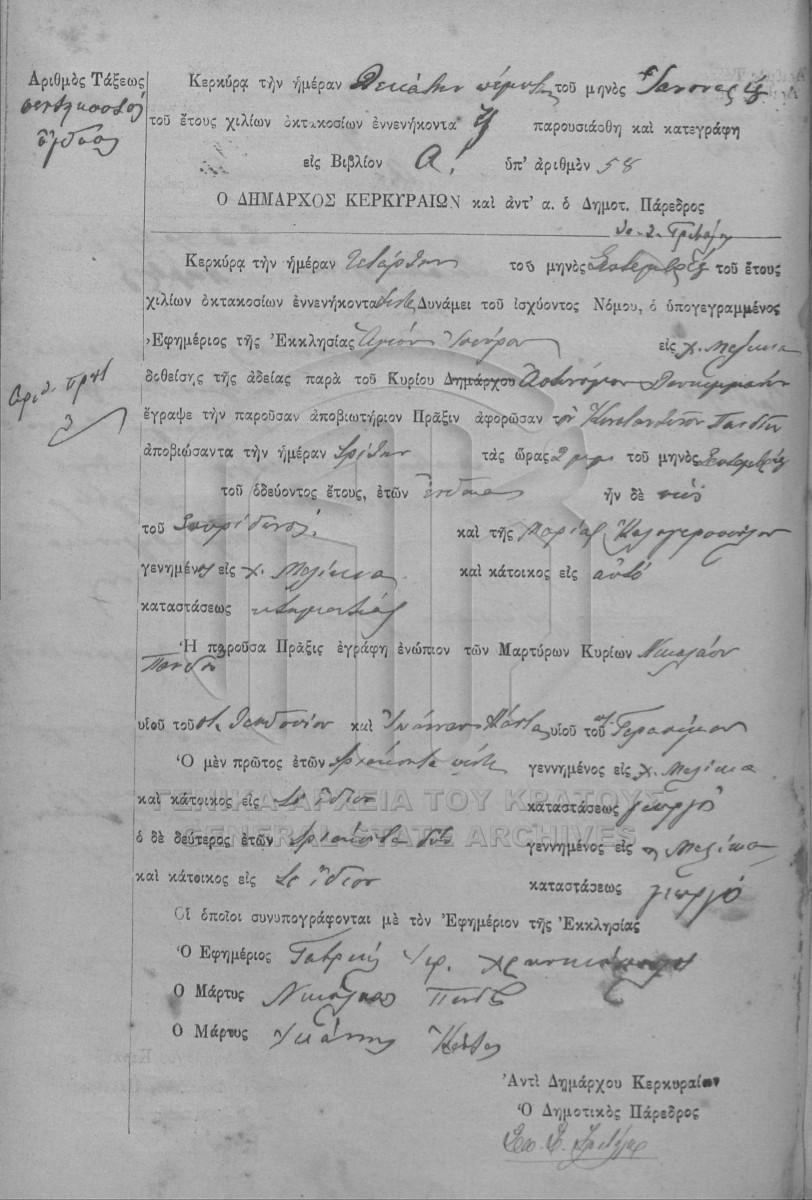 Ἀριθμὸς Τάξεως
πεντηκοστὸς
ὄγδοος
Κερκύρα τὴν ἡμέραν Δεκάτην πέμπτην τοῦ μηνὸς Ἰανουαρίου
τοῦ ἔτους χιλίων ὀκτακοσίων ἐννενήκοντα ἓξ παρουσιάσθη καὶ κατεγράφη
εἰς Βιβλίον Α! ὑπ' ἀριθμὸν 58
Ο ΔΗΜΑΡΧΟΣ ΚΕΡΚΥΡΑΙΩΝ καὶ ἀντ' α. ὁ Δημοτ. Πάρεδρος
Κερκύρα τὴν ἡμέραν τετάρτην τοῦ μηνὸς τοῦ ἔτους
χιλίων ὀκτακοσίων ἐννενήκοντα πέντε Δυνάμει τοῦ ἰσχύοντος Νόμου, ὁ ὑπογεγραμμένος
Ἐφημέριος τῆς Ἐκκλησίας Ἁγίου εἰς χ. Μελίκια
Ἀριθ. πρωτ
3
δοθείσης τῆς ἀδείας παρὰ τοῦ Κυρίου Δημάρχου Ἀστυνόμου
ἔγραψε τὴν παροῦσαν ἀποβιωτήριον Πρᾶξιν ἀφορῶσαν τὸν Κωνσταντῖνον
ἀποβιώσαντα τὴν ἡμέραν τρίτην τὰς ὥρας 2 μ.μ. τοῦ μηνὸς
τοῦ ὁδεύοντος ἔτους, ἐτῶν ἕνδεκα ἦν δὲ υἱὸς
τοῦ Σπυρίδωνος καὶ τῆς Μαρίας Καλογεροπούλου
γεννημένος εἰς χ. Μελίκια καὶ κάτοικος εἰς αὐτό
καταστάσεως κτηματίας
Ἡ παροῦσα Πρᾶξις ἐγράφη ἐνώπιον τῶν Μαρτύρων Κυρίων Νικολάου
υἱοῦ τοῦ καὶ Ἰωάννου Κόντε υἱοῦ τοῦ Γερασίμου
Ὁ μὲν πρῶτος ἐτῶν τριάκοντα πέντε γεννημένος εἰς χ. Μελίκια
καὶ κάτοικος εἰς τὸ ἴδιον καταστάσεως γεωργὸς
ΓΕΝΙΚΑ ΑΡΧΕΙΑ ΤΟΥ ΚΡΑΤΟΥΣ
GENERAL STATE ARCHIVES
ὁ δὲ δεύτερος ἐτῶν τριάκοντα δύο γεννημένος εἰς χ. Μελίκια
καὶ κάτοικος εἰς τὸ ἴδιον καταστάσεως γεωργὸς
Οἱ ὁποῖοι συνυπογράφονται μὲ τὸν Ἐφημέριον τῆς Ἐκκλησίας
Ὁ Ἐφημέριος
Ὁ Μάρτυς Νικόλαος
Ὁ Μάρτυς Ἰωάννης
Ἀντὶ Δημάρχου Κερκυραίων
Ὁ Δημοτικὸς Πάρεδρος